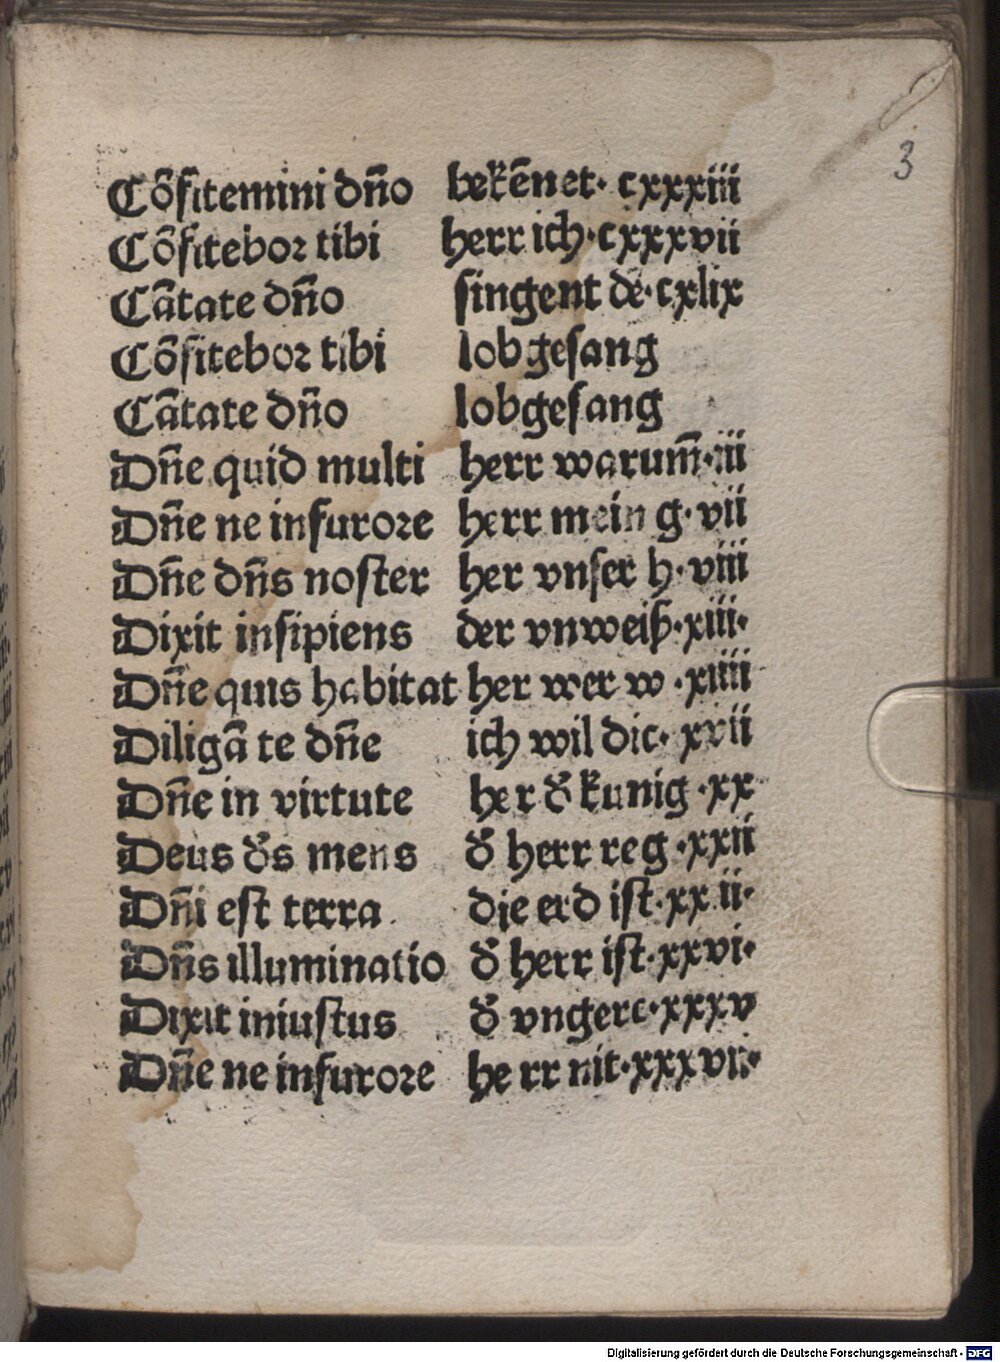 3
Cōfitemini dn̄o bekēnet· cxxxiii
Cōfitebor tibi herr ich·cxxxvii
Cātate dn̄o singent de·cxlix
Cōfitebor tibi lobgesang
Cātate dn̄o lobgesang
Dn̄e quid multi herr warum̄·iii
Dn̄e ne infurore herr mein g·vii
Dn̄e dn̄s noster her vnser h·viii
Dixit insipiens der vnweiß·xiii·
Dn̄e quis habitat her wer w·xiiii
Diligā te dn̄e ich wil dic· xvii
Dn̄e in virtute her d̕ kunig·xx
Deus d̕s meus d̕ herr reg·xxii
Dn̄i est terra die erd ist·xx ii·
Dn̄s illuminatio d̕ herr ist·xxvi·
Dixit iniustus d̕ vngerc·xxxv
Dn̄e ne infurore he rr nit·xxxvii·
Digitalisierung gefördert durch die Deutsche Forschungsgemeinschaft - DFG